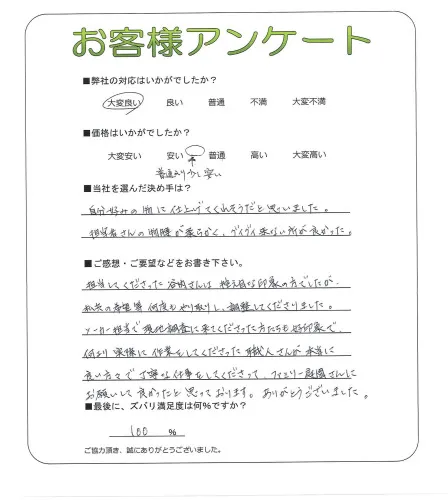 お客様アンケート
■弊社の対応はいかがでしたか？
大変良い 良い 普通 不満 大変不満
■価格はいかがでしたか？
大変安い 安い 普通 高い 大変高い
普通より少し安い
■当社を選んだ決め手は？
自分好みの物に仕上げてくれそうだと思いました。
担当者さんの物腰が柔らかく、グイグイ来ない所が良かった。
■ご感想・ご要望などをお書き下さい。
担当してくださった谷内さんは控え目な印象の方でしたが、
私共の希望等何度もやり取りし、調整してくださりました。
メーカー担当で現地調査に来てくださった方たちも好印象で、
何より実際に作業をしてくださった職人さんが本当に
良い方々で丁寧な仕事をしてくださって、フェリー庭園さんに
お願いして良かったと思っております。ありがとうございました。
■最後に、ズバリ満足度は何%ですか？
100 %
ご協力頂き、誠にありがとうございました。